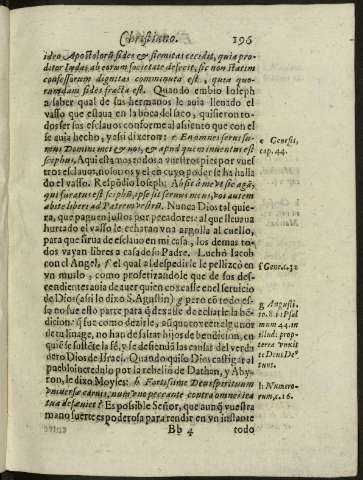 Christiano. 196
ideo Apostolorũ fides & firmitas cecidit, quia pro-
ditor Iudas ab eorum societate defecit, sic non statim
confessorum dignitas comminuta est, quia quo-
rumdam fides fracta est. Quando embio Ioseph
a saber qual de sus hermanos le auia lleuado el
vasso que estaua en la boca del saco, quisieron to-
dos ser sus esclauos conforme al assiento que con el
se auia hecho, y assi dixeron: e En omnes serui su-
mus Domini mei & nos, & apud quem inuentus est
scyphus, Aqui estamos todos a vuestros pies por vues-
tros esclauos, nosotros y el en cuyo poder se ha halla
do el vasso. Respõdio Ioseph: Absit à me vt sic agã,
qui furatus est scyphũ, ipse sit seruus meus, vos autem
abite liberi ad Patrem vestrũ. Nunca Dios tal quie-
ra, que paguen justos por pecadores: al que lleuaua
hurtado el vasso le echaran vna argolla al cuello,
para que sirua de esclauo en mi casa, los demas to-
dos vayan libres a casa de su Padre. Luchó Iacob
con el Angel, f el qual al despedirse le pellizcò en
vn muslo, como profetizandole que de sus des-
cendientes auia de auer quien coxease en el seruicio
de Dios (assi lo dixo S. Agustin) g pero cõ todo es-
so no fue esto parte para q̃ dexasse de echarle la bẽ-
dicion: q̃ fue como dezirle, aũque coxeen algunos
de tu linage, no han de faltar hijos de bendicion, en
quiẽ se sustẽte la fè, y se defienda las causas del verda
dero Dios de Israel. Quando quiso Dios castigar al
pueblo incredulo por la rebeliõ de Dathan, y Aby-
ron, le dixo Moyses: h Fortissime Deus spirituum
vniuersæ carnis, num vno peccante contra omnes ira
tua desæuiet? Es possible Señor, que aunq̃ vuestra
mano fuerte es poderosa para rendir en vn instante
Bb 4 todo
e Genesis,
cap. 44.
f Gene. c. 32
g Augusti.
to. 8. in Psal
mum 44. in
illud: prop-
terea vnxit
te Deus De9
tuus.
h Numero-
rum, c. 16.